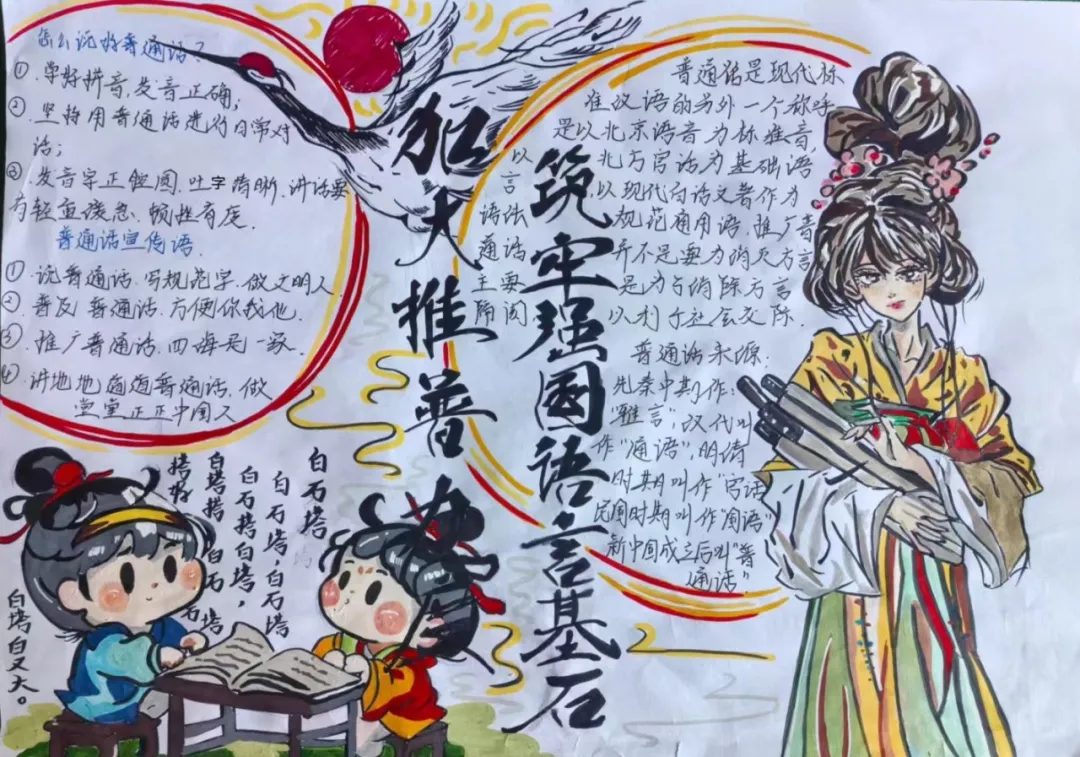 怎么说好普通话?
①.学好拼音,发音正确;
②.坚持用普通话进行日常对
话;
③.发音字正腔圆.吐字清晰.讲话要
有轻重缓急.顿挫有度.
普通话宣传语.
①.说普通话.写规范字.做文明人.
②.普及普通话.方便你我他.
③.推广普通话.四海是一家.
④.讲地地道道普通话.做
堂堂正正中国人
加大推普力
筑牢强国语言基石
普通话是现代标
准汉语的另外一个称呼
是以北京语音为标准音,
以北方官话为基础语
言以现代白话文著作为
语法规范通用语.推广普
通话并不是要为消灭方言
主要是为了消除方言
隔阂以利于社会交际.
普通话来源.
先秦中期作:
"雅言",汉代叫
作"通语",明清
时期叫作"官话
民国时期叫作"国语"
新中国成立后叫"普
通话"
白石塔
白石塔,白石塔
白石搭白塔,
白塔搭白石塔
搭好
石
白塔白又大。